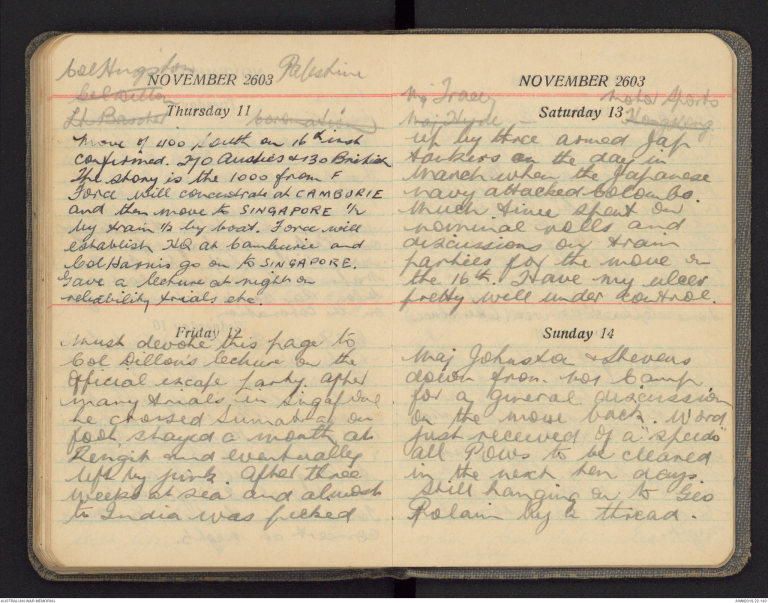 Col Hingston Palestine
NOVEMBER 2603
Col Dillon
Thursday 11
Lt Baschet Coronation
Move of 400 South on 16th inst
confirmed. 270 Aussies & 130 British
The story is the 1000 from F
Force will concentrate at CAMBURIE
and then move to SINGAPORE 1/2
by train 1/2 by boat. Force will
establish HQ at Camburie and
Col Harris go on to SINGAPORE.
Gave a lecture at night on
reliability trials etc.
Friday 12
Must devote this page to
Col Dillon's lecture on the
Official escape party. After
many trials in Singapore
he crossed Sumatra on
foot, stayed a month at
Rengit and eventually
left by junk. After three
weeks at sea and almost
to India was picked
NOVEMBER 2603
Maj Tracey Motor Sports
Saturday 13
Maj Hunt - Hongkong
up by three armed Jap
tankers on the day in
March when the Japanese
navy attacked Colombo.
Much time spent on
nominal rolls and
discussions on train
parties for the move on
the 16th. Have my ulcer
pretty well under control.
Sunday 14
Maj Johnston & Stevens
down from No 1 Camp
for a general discussion
on the move back. Word
just received of a "speedo"
all POWs to be cleared
in the next ten days.
Still hanging on to Geo
Polain by a thread.
AUSTRALIAN WAR MEMORIAL